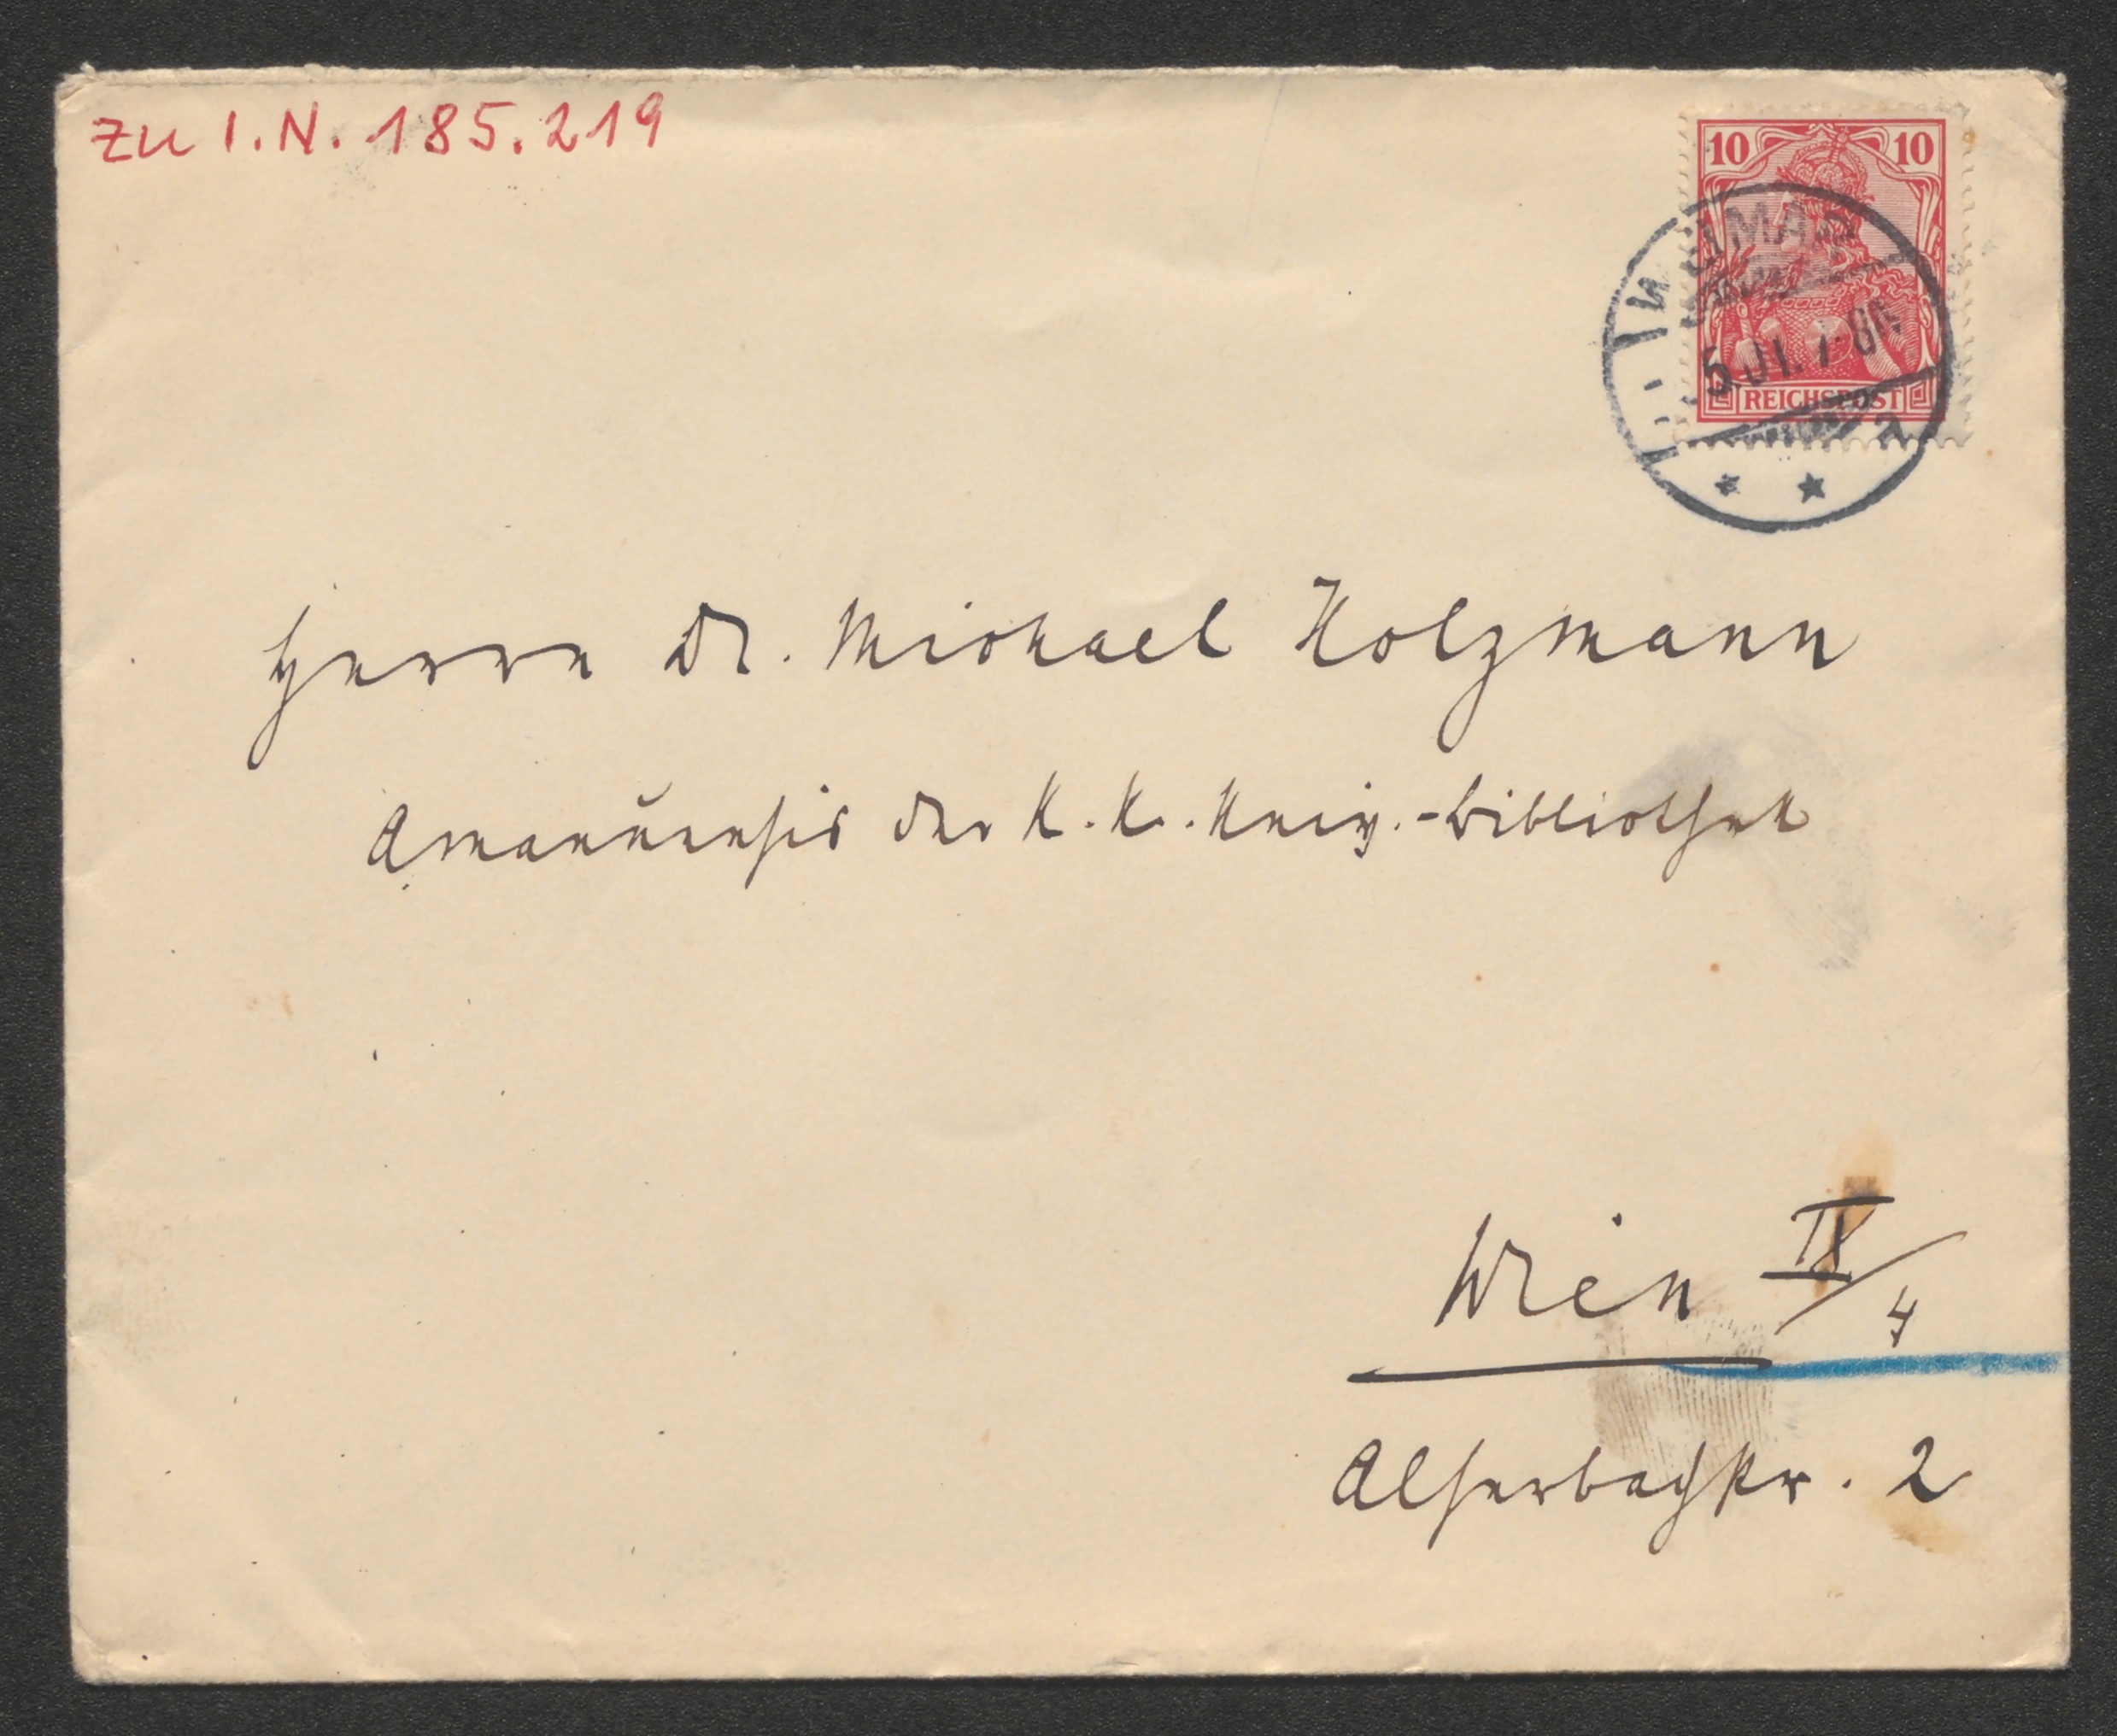 zu I.N. 185.219
10 10
REICHSPOST
Herrn Dr. Michael Holzmann
Amanuensis der K. K. Univ.-Bibliothek
Wien IX/4
Alserbachstr. 2